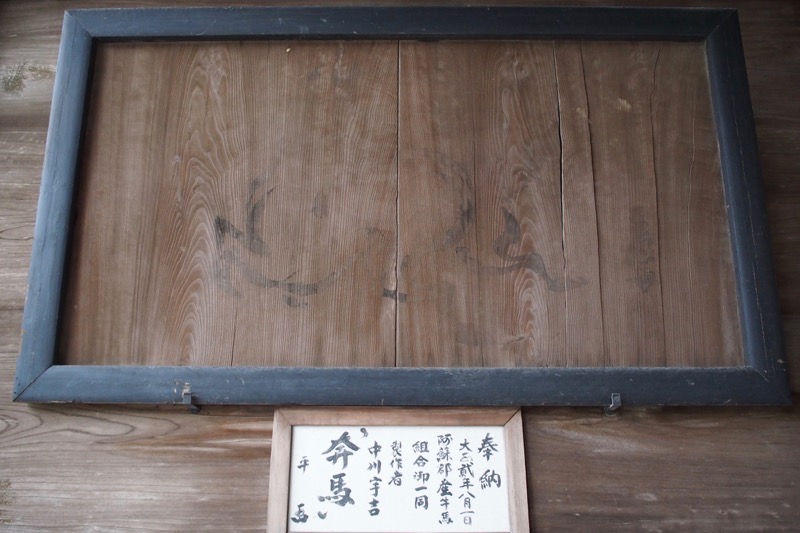 奉納
大正貳年八月一日
阿蘇郡産牛馬
組合御一同
製作者
中川宇吉
奔馬